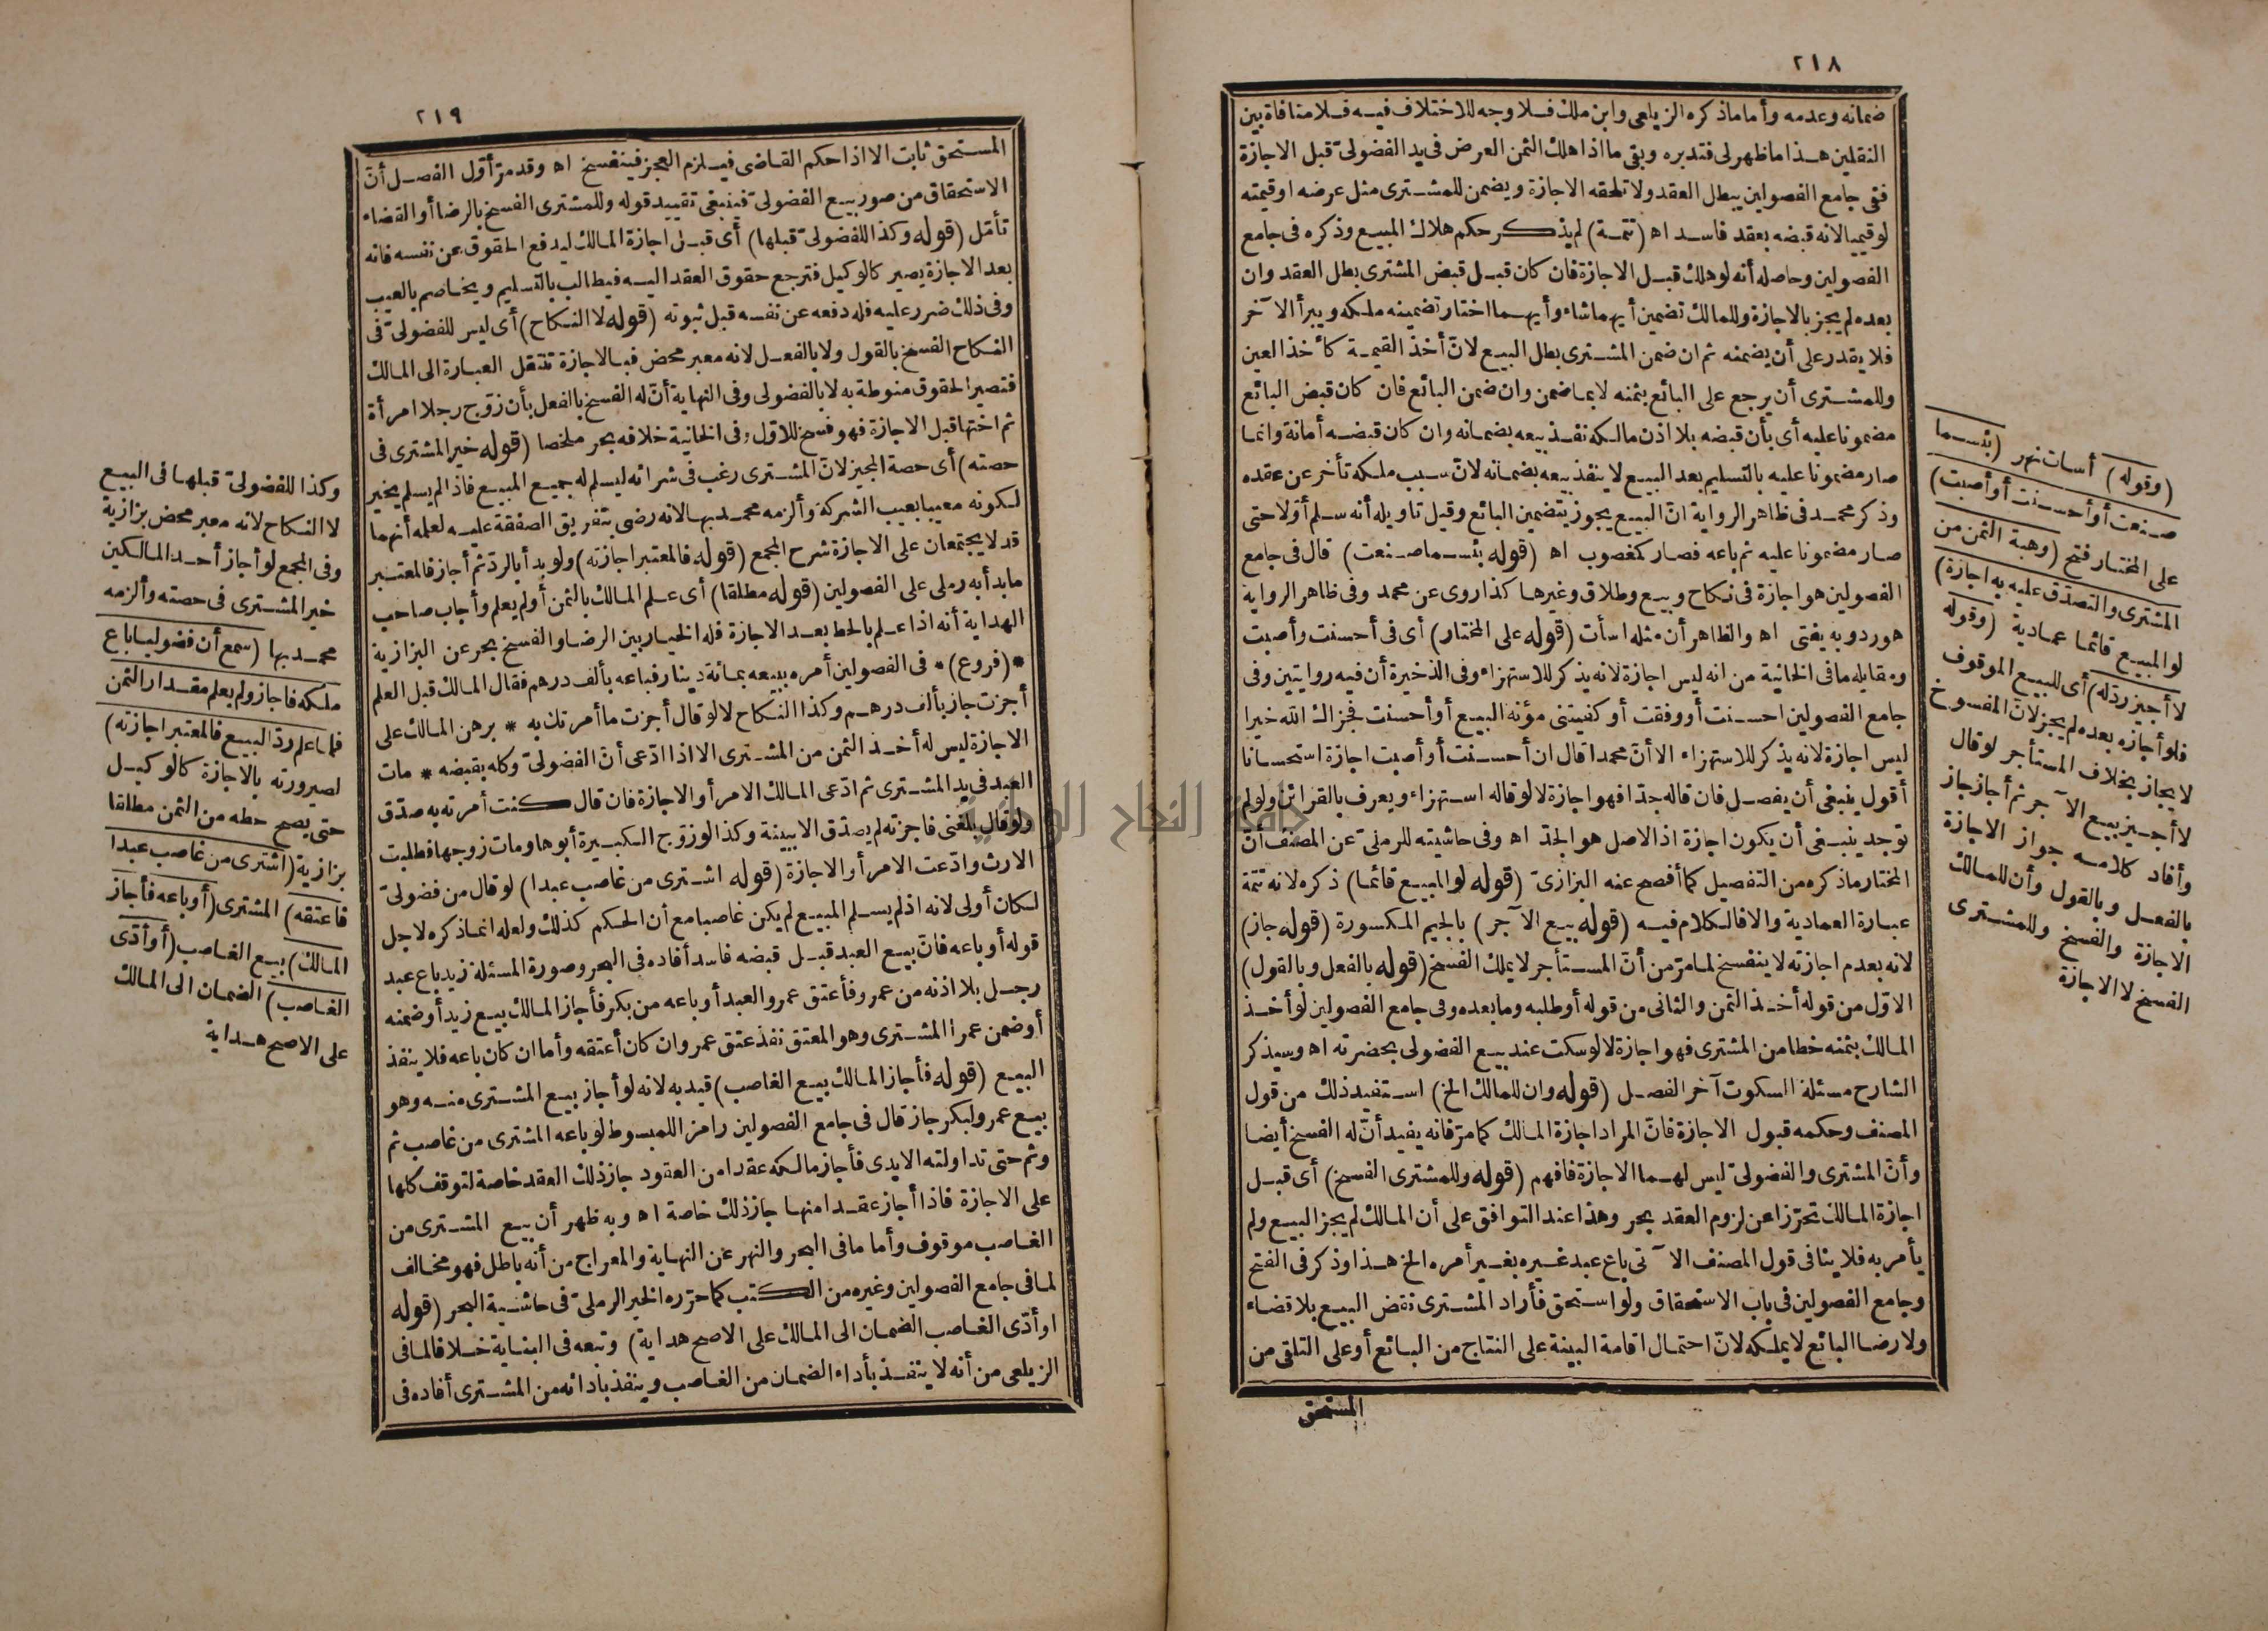 ٢١٨
ضمانه وعدمه وأما ماذكره الزيلعى وابن ملك فلا وجه للاختلاف فيه فلا منافاة بين
النقلين هذا ما ظهر لى فتدبره وبقى ما اذا هلك الثمن العرض فى يد الفضولىّ قبل الاجازة
ففى جامع الفصولين يبطل العقد ولا تلحقه الاجازة ويضمن للمشترى مثل عرضه اوقيمته
لوقيميا لانه قبضه بعقد فاسد اه (تتمة) لم يذكر حكم هلاك المبيع وذكره فى جامع
الفصولين وحاصله أنه لوهلك قبل الاجازة فان كان قبل قبض المشترى بطل العقد وان
بعده لم يجز بالاجازة وللمالك تضمين أيهما شاء وأيهما اختار تضمينه ملكه ويبرأ الآخر
فلا يقدر على أن يضمنه ثم ان ضمن المشترى بطل البيع لانّ أخذ القيمة كأخذ العين
وللمشترى أن يرجع على البائع بثمنه لا بما ضمن وان ضمن البائع فان كان قبض البائع
مضمونا عليه أى بأن قبضه بلا اذن مالكه نفذ بيعه بضمانه وان كان قبضه أمانة وانما
صار مضمونا عليه بالتسليم بعد البيع لا ينفذ بيعه بضمانه لانّ سبب ملكه تأخر عن عقده
وذكر محمد فى ظاهر الرواية انّ البيع يجوز بتضمين البائع وقيل تاويله أنه سلم أوّلا حتى
صار مضمونا عليه ثم باعه فصار كمغصوب اه (قوله بئسما صنعت) قال فى جامع
الفصولين هو اجازة فى نكاح وبيع وطلاق وغيرها كذا روى عن محمد وفى ظاهر الرواية
هو رد وبه يفتى اه والظاهر أن مثله اسأت (قوله على المختار) أى فى أحسنت وأصبت
ومقابله ما فى الخانية من انه ليس اجازة لانه يذكر للاستهزاء وفى الذخيرة أن فيه روايتين وفى
جامع الفصولين احسنت أو وفقت أو كفيتنى مؤنة البيع أو أحسنت فجزاك الله خيرا
ليس اجازة لانه يذكر للاستهزاء الا أنّ محمدا قال ان أحسنت أو أصبت اجازة استحسانا
أقول ينبغى أن يفصل فان قاله جدّا فهو اجازة لا لو قاله استهزاء ويعرف بالقرائن ولو لم
توجد ينبغى أن يكون اجازة اذ الاصل هو الجدّ اه وفى حاشيته للرملىّ عن المصنف انّ
المختار ما ذكره من التفصيل كما أفصح عنه البزازىّ (قوله لو المبيع قائما) ذكره لانه تتمة
عبارة العمادية والا فالكلام فيه (قوله ببيع الآجر) بالجيم المكسورة (قوله جاز)
لانه بعدم اجازته لا ينفسخ لما مرّ من أنّ المستأجر لا يملك الفسخ (قوله بالفعل وبالقول)
الاوّل من قوله أخذ الثمن والثانى من قوله أو طلبه وما بعده وفى جامع الفصولين لو أخذ
المالك بثمنه خطا من المشترى فهو اجازة لا لو سكت عند بيع الفضولى بحضرته اه وسيذكر
الشارح مسئلة السكوت آخر الفصل (قوله وان للمالك الخ) استفيد ذلك من قول
المصنف وحكمه قبول الاجازة فانّ المراد اجازة المالك كما مرّ فانه يفيد أنّ له الفسخ أيضا
وأنّ المشترى والفضولىّ ليس لهما الاجازة فافهم (قوله وللمشترى الفسخ) أى قبل
اجازة المالك تحرّزا عن لزوم العقد بحر وهذا عند التوافق على أن المالك لم يجز البيع ولم
يأمر به فلا ينافى قول المصنف الآتى باع عبد غيره بغير أمره الخ هذا وذكر فى الفتح
وجامع الفصولين فى باب الاستحقاق ولو استحق فأراد المشترى نقض البيع بلا قضاء
ولا رضا البائع لا يملكه لانّ احتمال اقامة البينة على النتاج من البائع أو على التلقى من
المستحق
(وقوله) أسات نهر (بئسما
صنعت أو أحسنت أو أصبت)
على المختار فتح (وهبة الثمن من
المشترى والتصدّق عليه به اجازة)
لو المبيع قائما عمادية (وقوله
لا أجيز ردّ له) أى للبيع الموقوف
فلو أجازه بعده لم يجز لانّ المفسوخ
لا يجاز بخلاف المستأجر لو قال
لا أجيز بيع الآجر ثم أجاز جاز
وأفاد كلامه جواز الاجازة
بالفعل وبالقول وأن للمالك
الاجازة والفسخ وللمشترى
الفسخ لا الاجازة
٢١٩
المستحق ثابت الا اذا حكم القاضى فيلزم العجز فينفسخ اه وقد مرّ أوّل الفصل أنّ
الاستحقاق من صور بيع الفضولىّ فينبغى تقييد قوله وللمشترى الفسخ بالرضا أو القضاء
تأمّل (قوله وكذا للفضولىّ قبلها) أى قبل اجازة المالك ليدفع الحقوق عن نفسه فانه
بعد الاجازة يصير كالوكيل فترجع حقوق العقد اليه فيطالب بالتسليم ويخاصم بالعيب
وفى ذلك ضرر عليه فله دفعه عن نفسه قبل ثبوته (قوله لا النكاح) أى ليس للفضولىّ فى
النكاح الفسخ بالقول ولا بالفعل لانه معبر محض فبالاجازة تنتقل العبارة الى المالك
فتصير الحقوق منوطة به لا بالفضولى وفى النهاية أنّ له الفسخ بالفعل بأن زوّج رجلا امرأة
ثم اختها قبل الاجازة فهو فسخ للاوّل وفى الخانية خلافه بحر ملخصا (قوله خير المشترى فى
حصته) أى حصة المجيز لانّ المشترى رغب فى شرائه ليسلم له جميع المبيع فاذا لم يسلم يخير
لكونه معيبا بعيب الشركة وألزمه محمد بها لانه رضى بتفريق الصفقة عليه لعلمه أنهما
قد لا يجتمعان على الاجازة شرح المجمع (قوله فالمعتبر اجازته) ولو بدأ بالردّ ثم أجاز فالمعتبر
ما بدأ به رملى على الفصولين (قوله مطلقا) أى علم المالك بالثمن أو لم يعلم وأجاب صاحب
الهداية أنه اذا علم بالحط بعد الاجازة فله الخيار بين الرضا والفسخ بحر عن البزازية
* (فروع) * فى الفصولين أمره ببيعه بمائة دينار فباعه بألف درهم فقال المالك قبل العلم
أجزت جاز بألف درهم وكذا النكاح لا لو قال أجزت ما أمرتك به * برهن المالك على
الاجازة ليس له أخذ الثمن من المشترى الا اذا ادّعى أنّ الفضولىّ وكله بقبضه * مات
العبد فى يد المشترى ثم ادّعى المالك الامر أو الاجازة فان قال كنت أمرته به صدّق
ولو قال بلغنى فاجزته لم يصدّق الا ببينة وكذا لو زوّج الكبيرة أبوها ومات زوجها فطلبت
الارث وادّعت الامر أو الاجازة (قوله اشترى من غاصب عبدا) لو قال من فضولىّ
لكان أولى لانه اذ لم يسلم المبيع لم يكن غاصبا مع أن الحكم كذلك ولعله انما ذكره لاجل
قوله أو باعه فانّ بيع العبد قبل قبضه فاسد أفاده فى البحر وصورة المسئلة زيد باع عبد
رجل بلا اذنه من عمرو فأعتق عمرو العبد أو باعه من بكر فأجاز المالك بيع زيد أو ضمنه
أو ضمن عمرا المشترى وهو المعتق نفذ عتق عمرو ان كان أعتقه وأما ان كان باعه فلا ينفذ
البيع (قوله فأجاز المالك بيع الغاصب) قيد به لانه لو أجاز بيع المشترى منه وهو
بيع عمرو لبكر جاز قال فى جامع الفصولين رامزا للمبسوط لو باعه المشترى من غاصب ثم
وثم حتى تداولته الايدى فأجاز مالكه عقدا من العقود جاز ذلك العقد خاصة لتوقف كلها
على الاجازة فاذا أجاز عقدا منها جاز ذلك خاصة اه وبه ظهر أن بيع المشترى من
الغاصب موقوف وأما ما فى البحر والنهر عن النهاية والمعراج من أنه باطل فهو مخالف
لما فى جامع الفصولين وغيره من الكتب كما حرّره الخير الرملىّ فى حاشية البحر (قوله
او أدّى الغاصب الضمان الى المالك على الاصح هداية) وتبعه فى البناية خلافا لما فى
الزيلعى من أنه لا ينفذ بأداء الضمان من الغاصب وينفذ بادائه من المشترى أفاده فى
وكذا للفضولىّ قبلها فى البيع
لا النكاح لانه معبر محض بزازية
وفى المجمع لو أجاز أحد المالكين
خير المشترى فى حصته وألزمه
محمد بها (سمع أن فضوليا باع
ملكه فاجاز ولم يعلم مقدار الثمن
فلما علم ردّ البيع فالمعتبر اجازته)
لصيرورته بالاجازة كالوكيل
حتى يصح حطه من الثمن مطلقا
بزازية (اشترى من غاصب عبدا
فاعتقه) المشترى (أو باعه فأجاز
المالك) بيع الغاصب (أو أدّى
الغاصب) الضمان الى المالك
على الاصح هداية